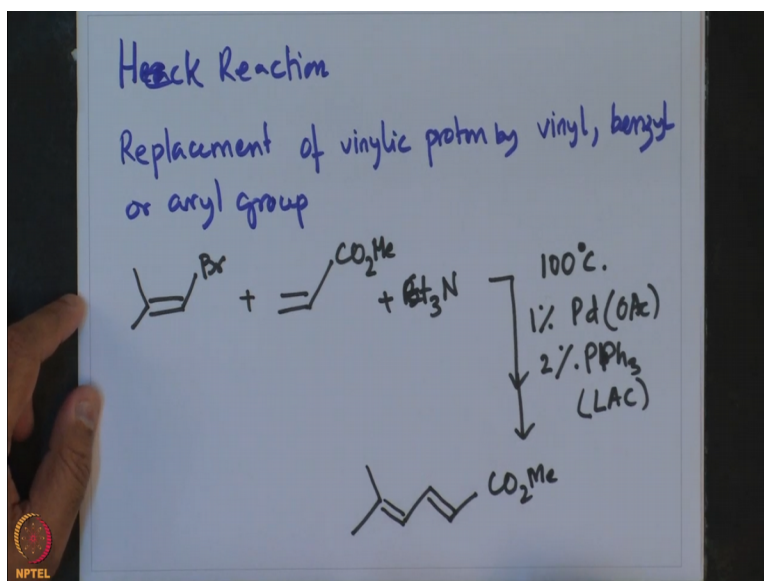 Heck Reaction
Replacement of vinylic proton by vinyl, benzyl
or aryl group
Br + CO₂Me + Et₃N
100°C.
1% Pd(OAc)
2%. PPh₃
(LAC)
CO₂Me
NPTEL